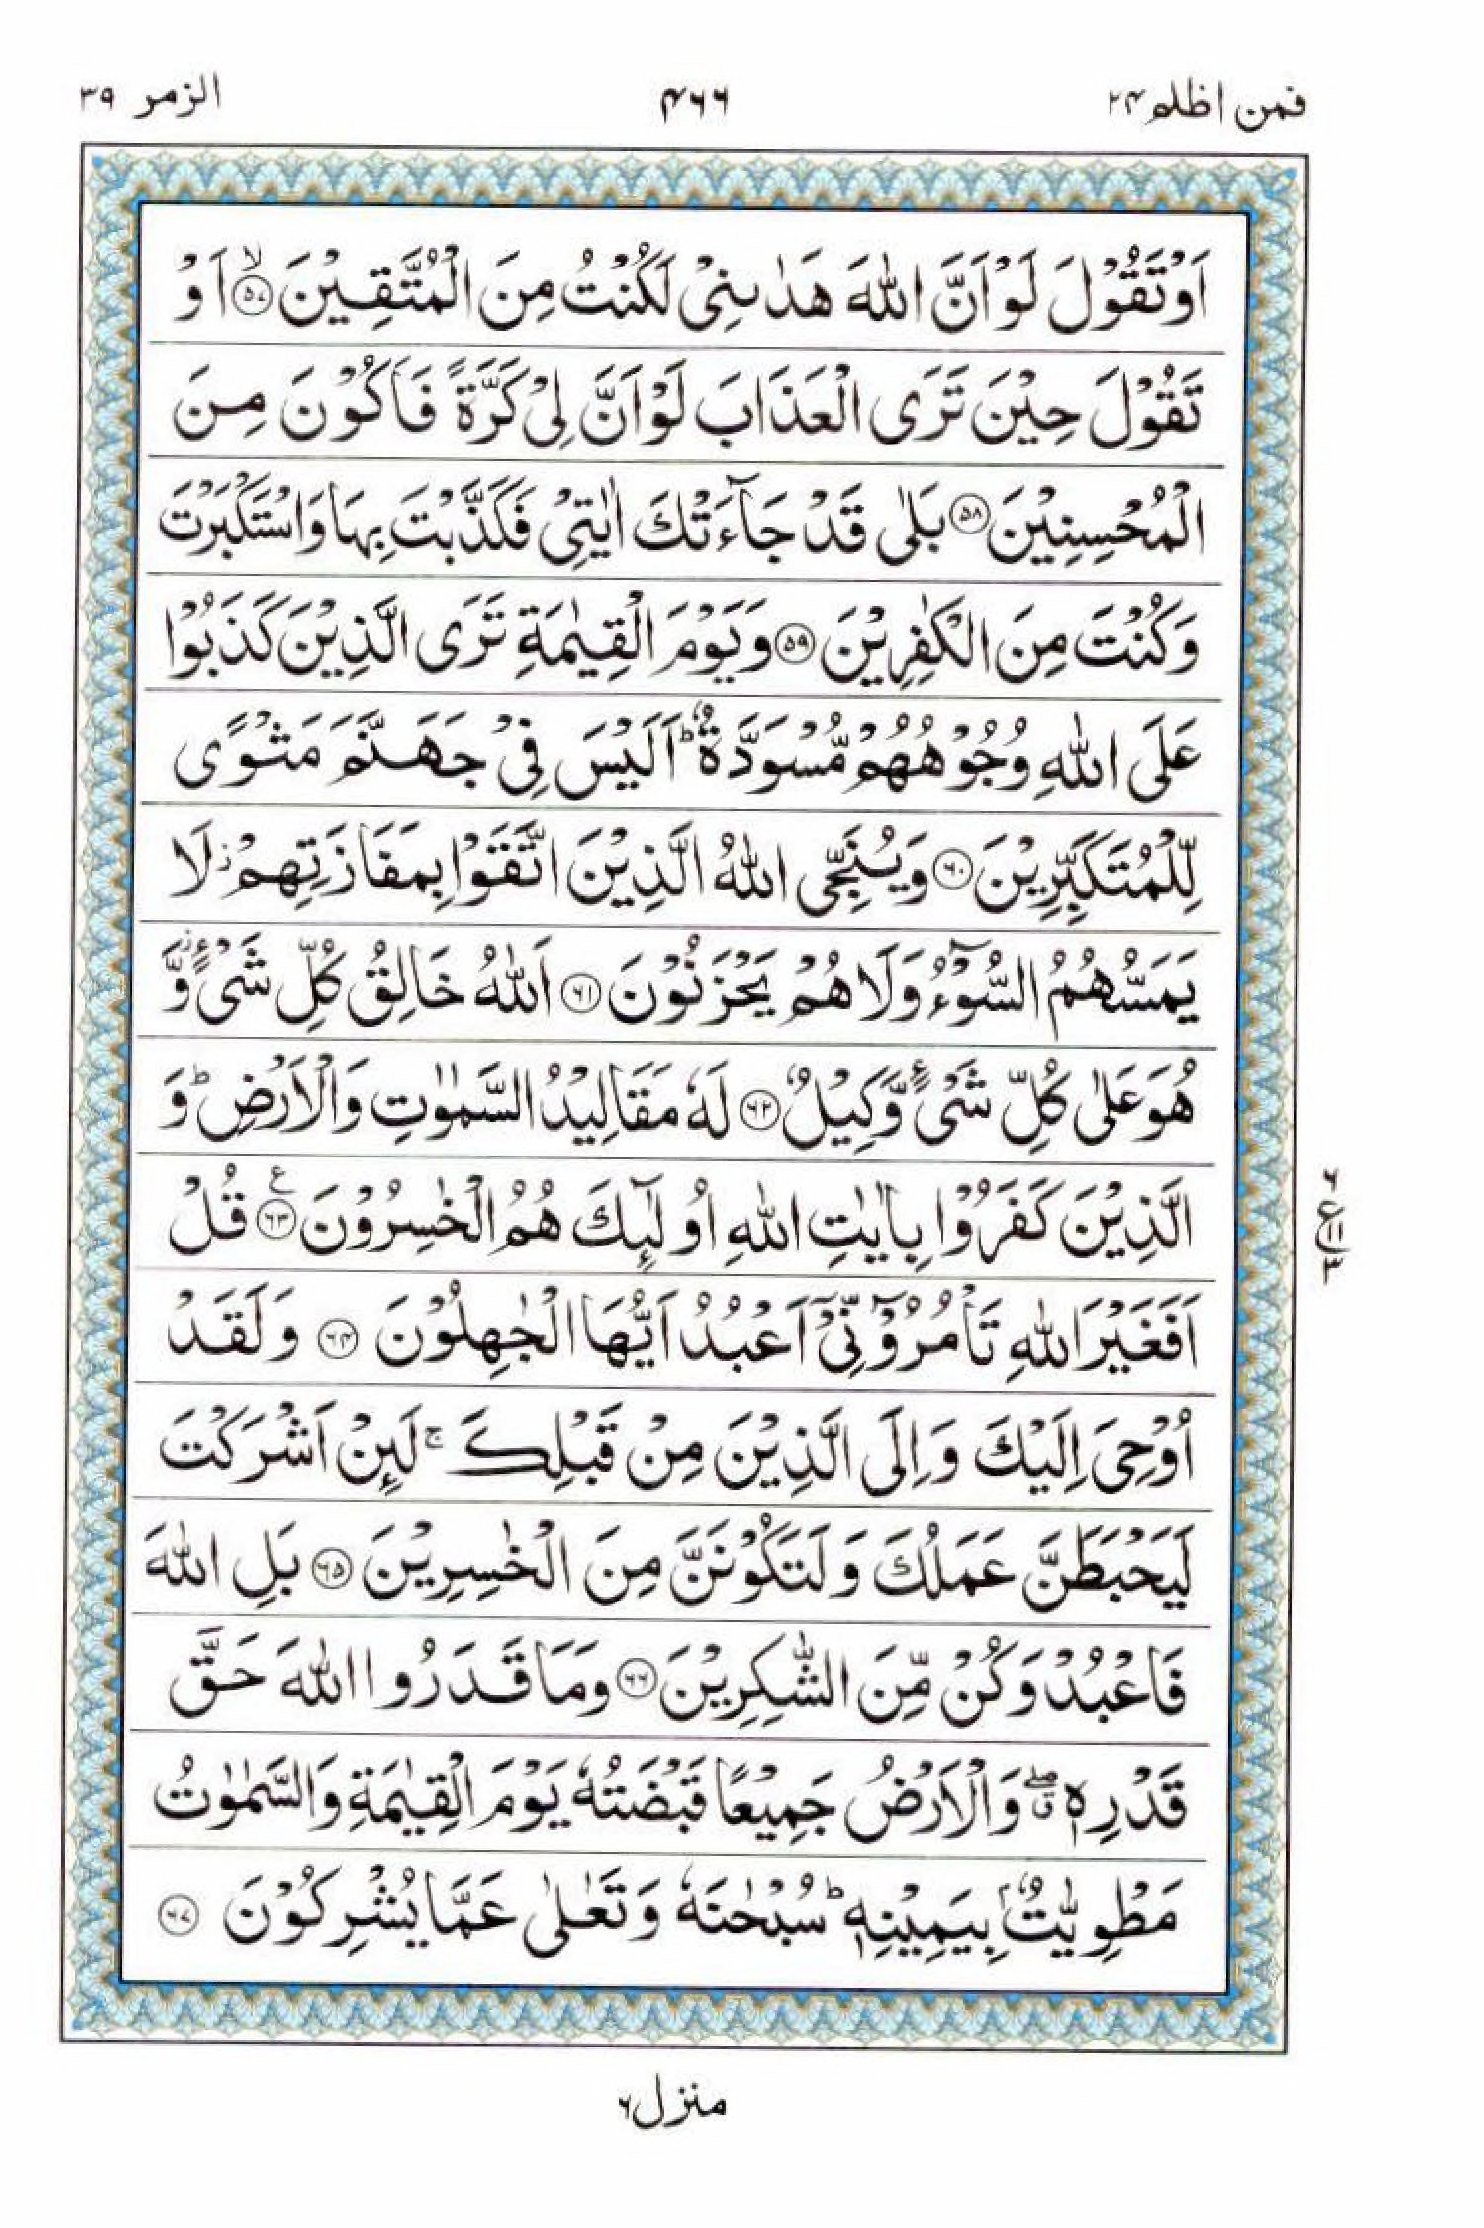 فمن اظلم ٢٤ ٤٦٦ الزمر ٣٩
اَوْ تَقُوْلَ لَوْ اَنَّ اللّٰهَ هَدٰىنِیْ لَكُنْتُ مِنَ الْمُتَّقِیْنَ ۙ﴿۵۷﴾ اَوْ
تَقُوْلَ حِیْنَ تَرَی الْعَذَابَ لَوْ اَنَّ لِیْ كَرَّةً فَاَكُوْنَ مِنَ
الْمُحْسِنِیْنَ ﴿۵۸﴾ بَلٰی قَدْ جَآءَتْكَ اٰیٰتِیْ فَكَذَّبْتَ بِهَا وَاسْتَكْبَرْتَ
وَكُنْتَ مِنَ الْكٰفِرِیْنَ ﴿۵۹﴾ وَیَوْمَ الْقِیٰمَةِ تَرَی الَّذِیْنَ كَذَبُوْا
عَلَی اللّٰهِ وُجُوْهُهُمْ مُّسْوَدَّةٌ ؕ اَلَیْسَ فِیْ جَهَنَّمَ مَثْوًی
لِّلْمُتَكَبِّرِیْنَ ﴿۶۰﴾ وَیُنَجِّی اللّٰهُ الَّذِیْنَ اتَّقَوْا بِمَفَازَتِهِمْ ؗ لَا
یَمَسُّهُمُ السُّوْٓءُ وَلَا هُمْ یَحْزَنُوْنَ ﴿۶۱﴾ اَللّٰهُ خَالِقُ كُلِّ شَیْءٍ ؗ وَّ
هُوَ عَلٰی كُلِّ شَیْءٍ وَّكِیْلٌ ﴿۶۲﴾ لَهٗ مَقَالِیْدُ السَّمٰوٰتِ وَالْاَرْضِ ؕ وَ
الَّذِیْنَ كَفَرُوْا بِاٰیٰتِ اللّٰهِ اُولٰٓئِكَ هُمُ الْخٰسِرُوْنَ ﴿۶۳﴾ ع قُلْ
اَفَغَیْرَ اللّٰهِ تَاْمُرُوْٓنِّیْٓ اَعْبُدُ اَیُّهَا الْجٰهِلُوْنَ ﴿۶۴﴾ وَلَقَدْ
اُوْحِیَ اِلَیْكَ وَاِلَی الَّذِیْنَ مِنْ قَبْلِكَ ۚ لَىِٕنْ اَشْرَكْتَ
لَیَحْبَطَنَّ عَمَلُكَ وَلَتَكُوْنَنَّ مِنَ الْخٰسِرِیْنَ ﴿۶۵﴾ بَلِ اللّٰهَ
فَاعْبُدْ وَكُنْ مِّنَ الشّٰكِرِیْنَ ﴿۶۶﴾ وَمَا قَدَرُوا اللّٰهَ حَقَّ
قَدْرِهٖ ۖۗ وَالْاَرْضُ جَمِیْعًا قَبْضَتُهٗ یَوْمَ الْقِیٰمَةِ وَالسَّمٰوٰتُ
مَطْوِیّٰتٌۢ بِیَمِیْنِهٖ ؕ سُبْحٰنَهٗ وَتَعٰلٰی عَمَّا یُشْرِكُوْنَ ﴿۶۷﴾
٦
ع ١١
٣
منزل ٦